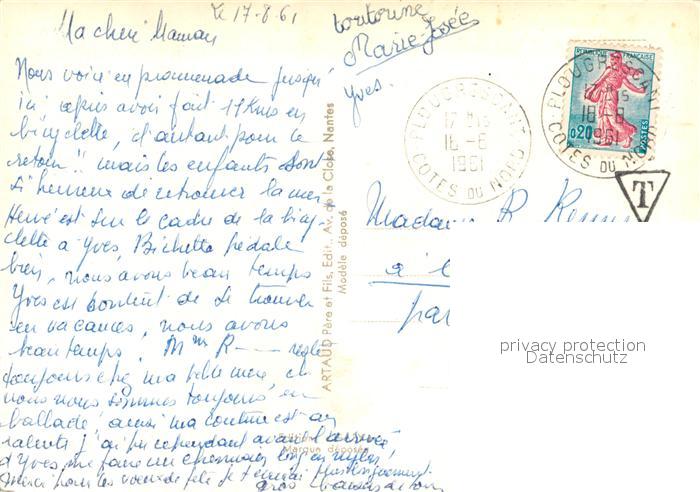 le 17-8-61
Ma chère Maman
Nous voici en promenade jusqu'
ici après avoir fait 17 kms en
bicyclette, d'autant pour le
retour !! mais les enfants sont
si heureux de retrouver la mer
Hervé est sur le cadre de la bicy-
clette à Yves, Bichette pédale
bien, nous avons beau temps
Yves est content de se trouver
en vacances, nous avons
beau temps. Mme R— reste
toujours chez ma belle mère, et
nous nous sommes toujours en
ballade, ainsi ma couture est au
ralenti, j'ai pu cependant avant l'arrivée
d'Yves me faire un chemisier
merci pour les vœux de fête
Gros baisers de tous
Marie-Josée
Yves.
ARTAUD Père et Fils, Edit., Av. de la Close, Nantes
Modèle déposé
Marque déposée
PLOUGRESCANT
18-8
1961
COTES DU NORD
REPUBLIQUE FRANÇAISE
0,20
POSTES
PLOUGRESCANT
18-8
1961
COTES DU NORD
T
Madame R
à l
par
privacy protection
Datenschutz